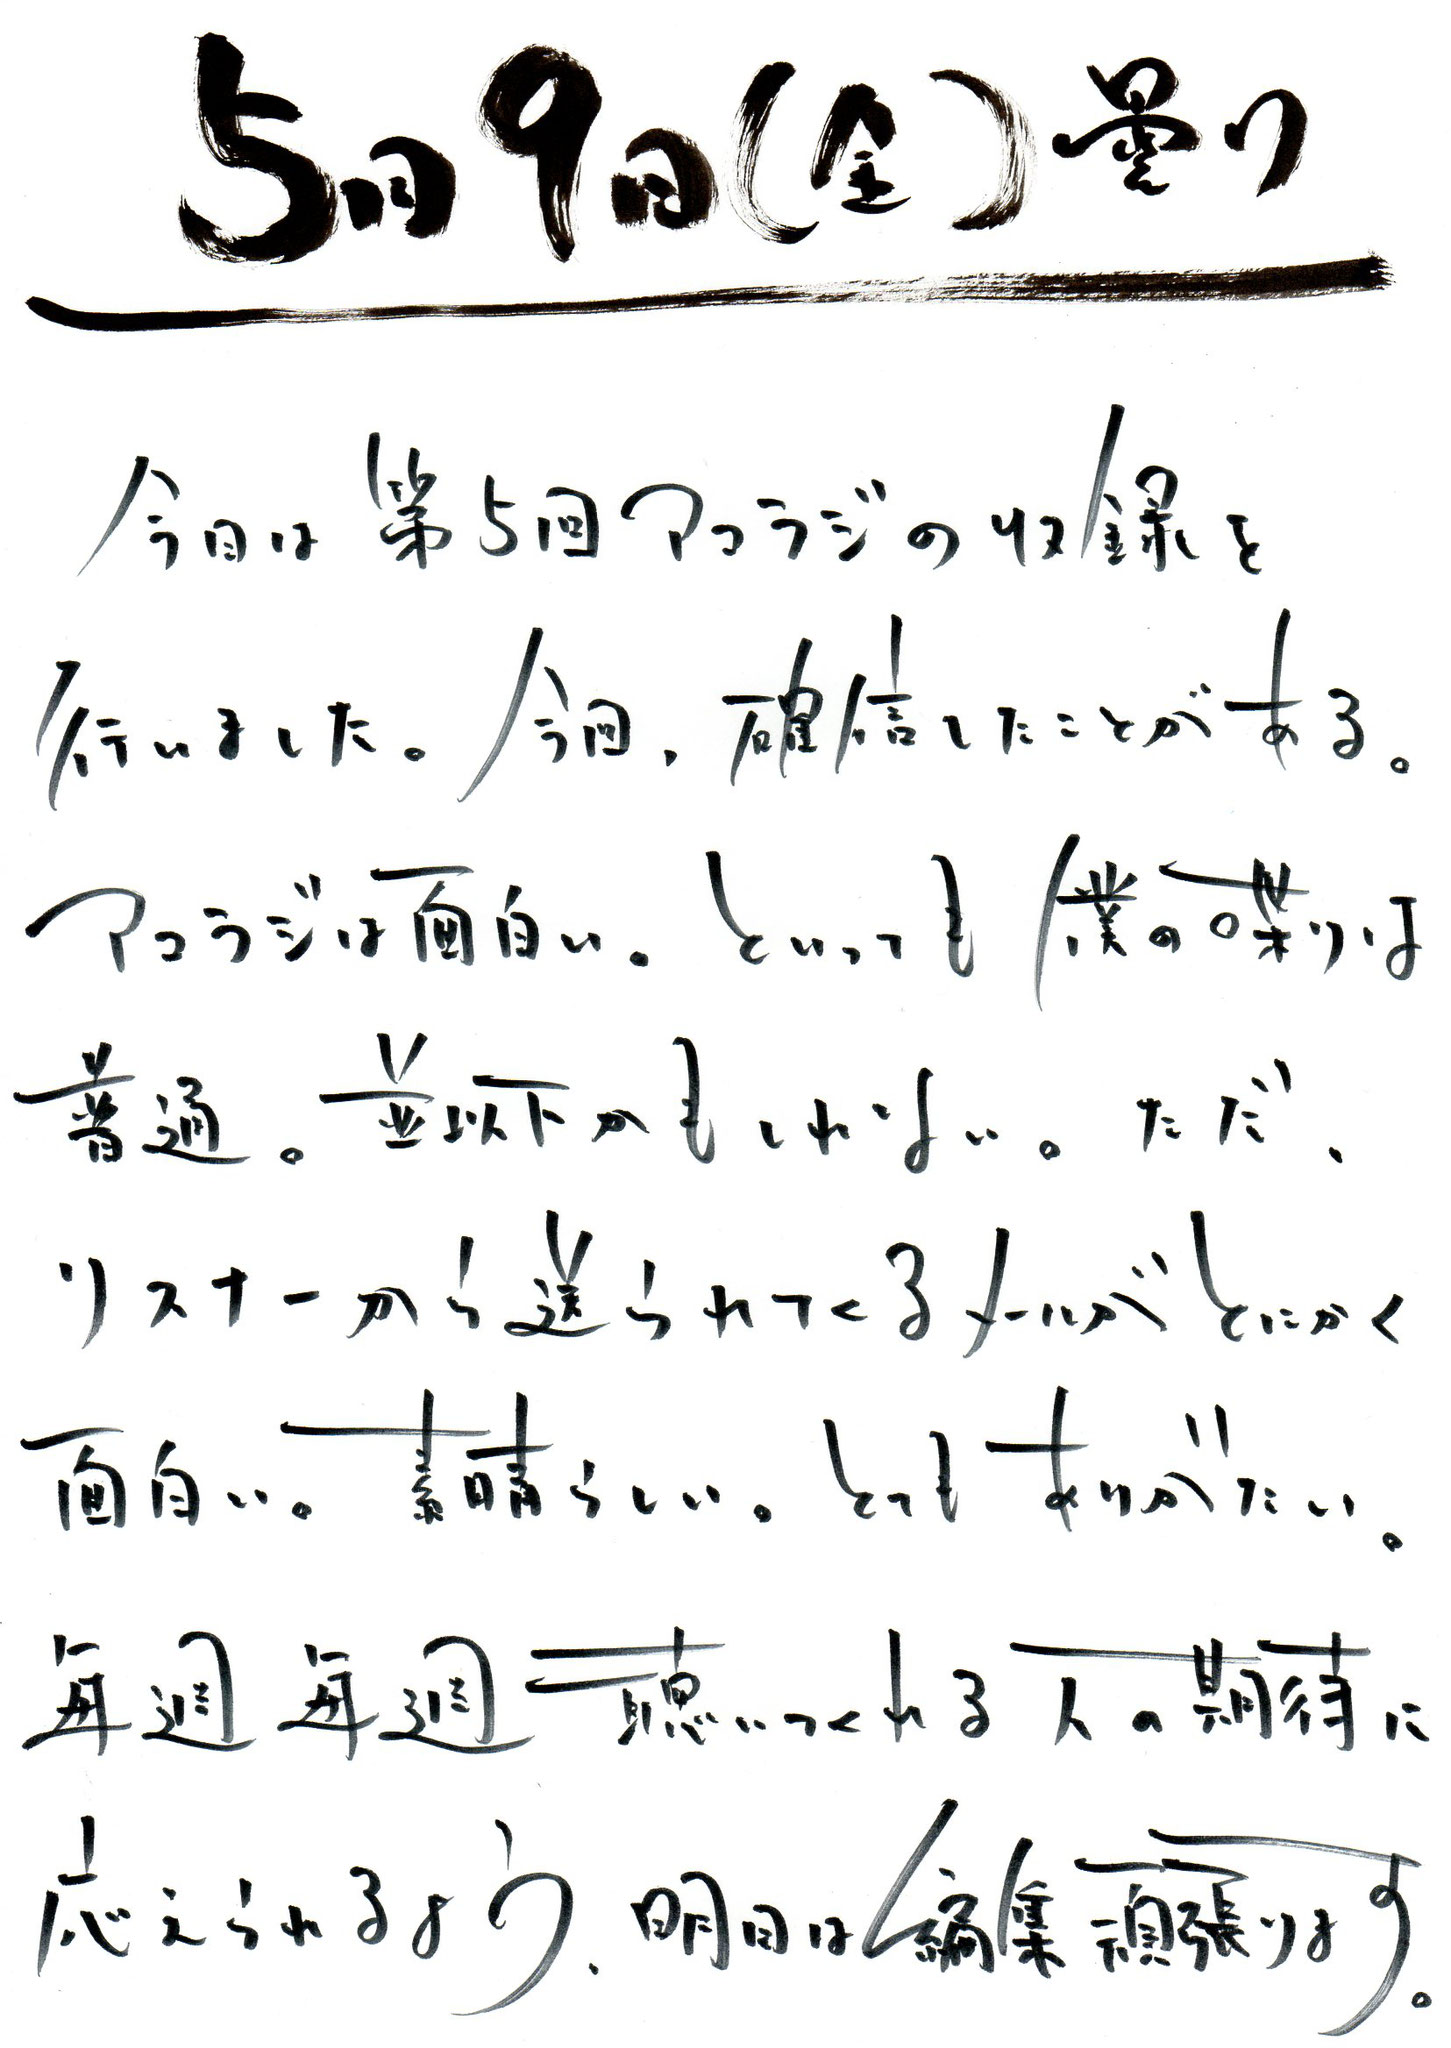 5月9日(金)曇り
今日は第5回アコラジの収録を
行いました。今回、確信したことがある。
アコラジは面白い。といっても僕の喋りは
普通。並以下かもしれない。ただ、
リスナーから送られてくるメールがとにかく
面白い。素晴らしい。とてもありがたい。
毎週毎週聴いてくれる人の期待に
応えられるよう、明日は編集頑張ります。